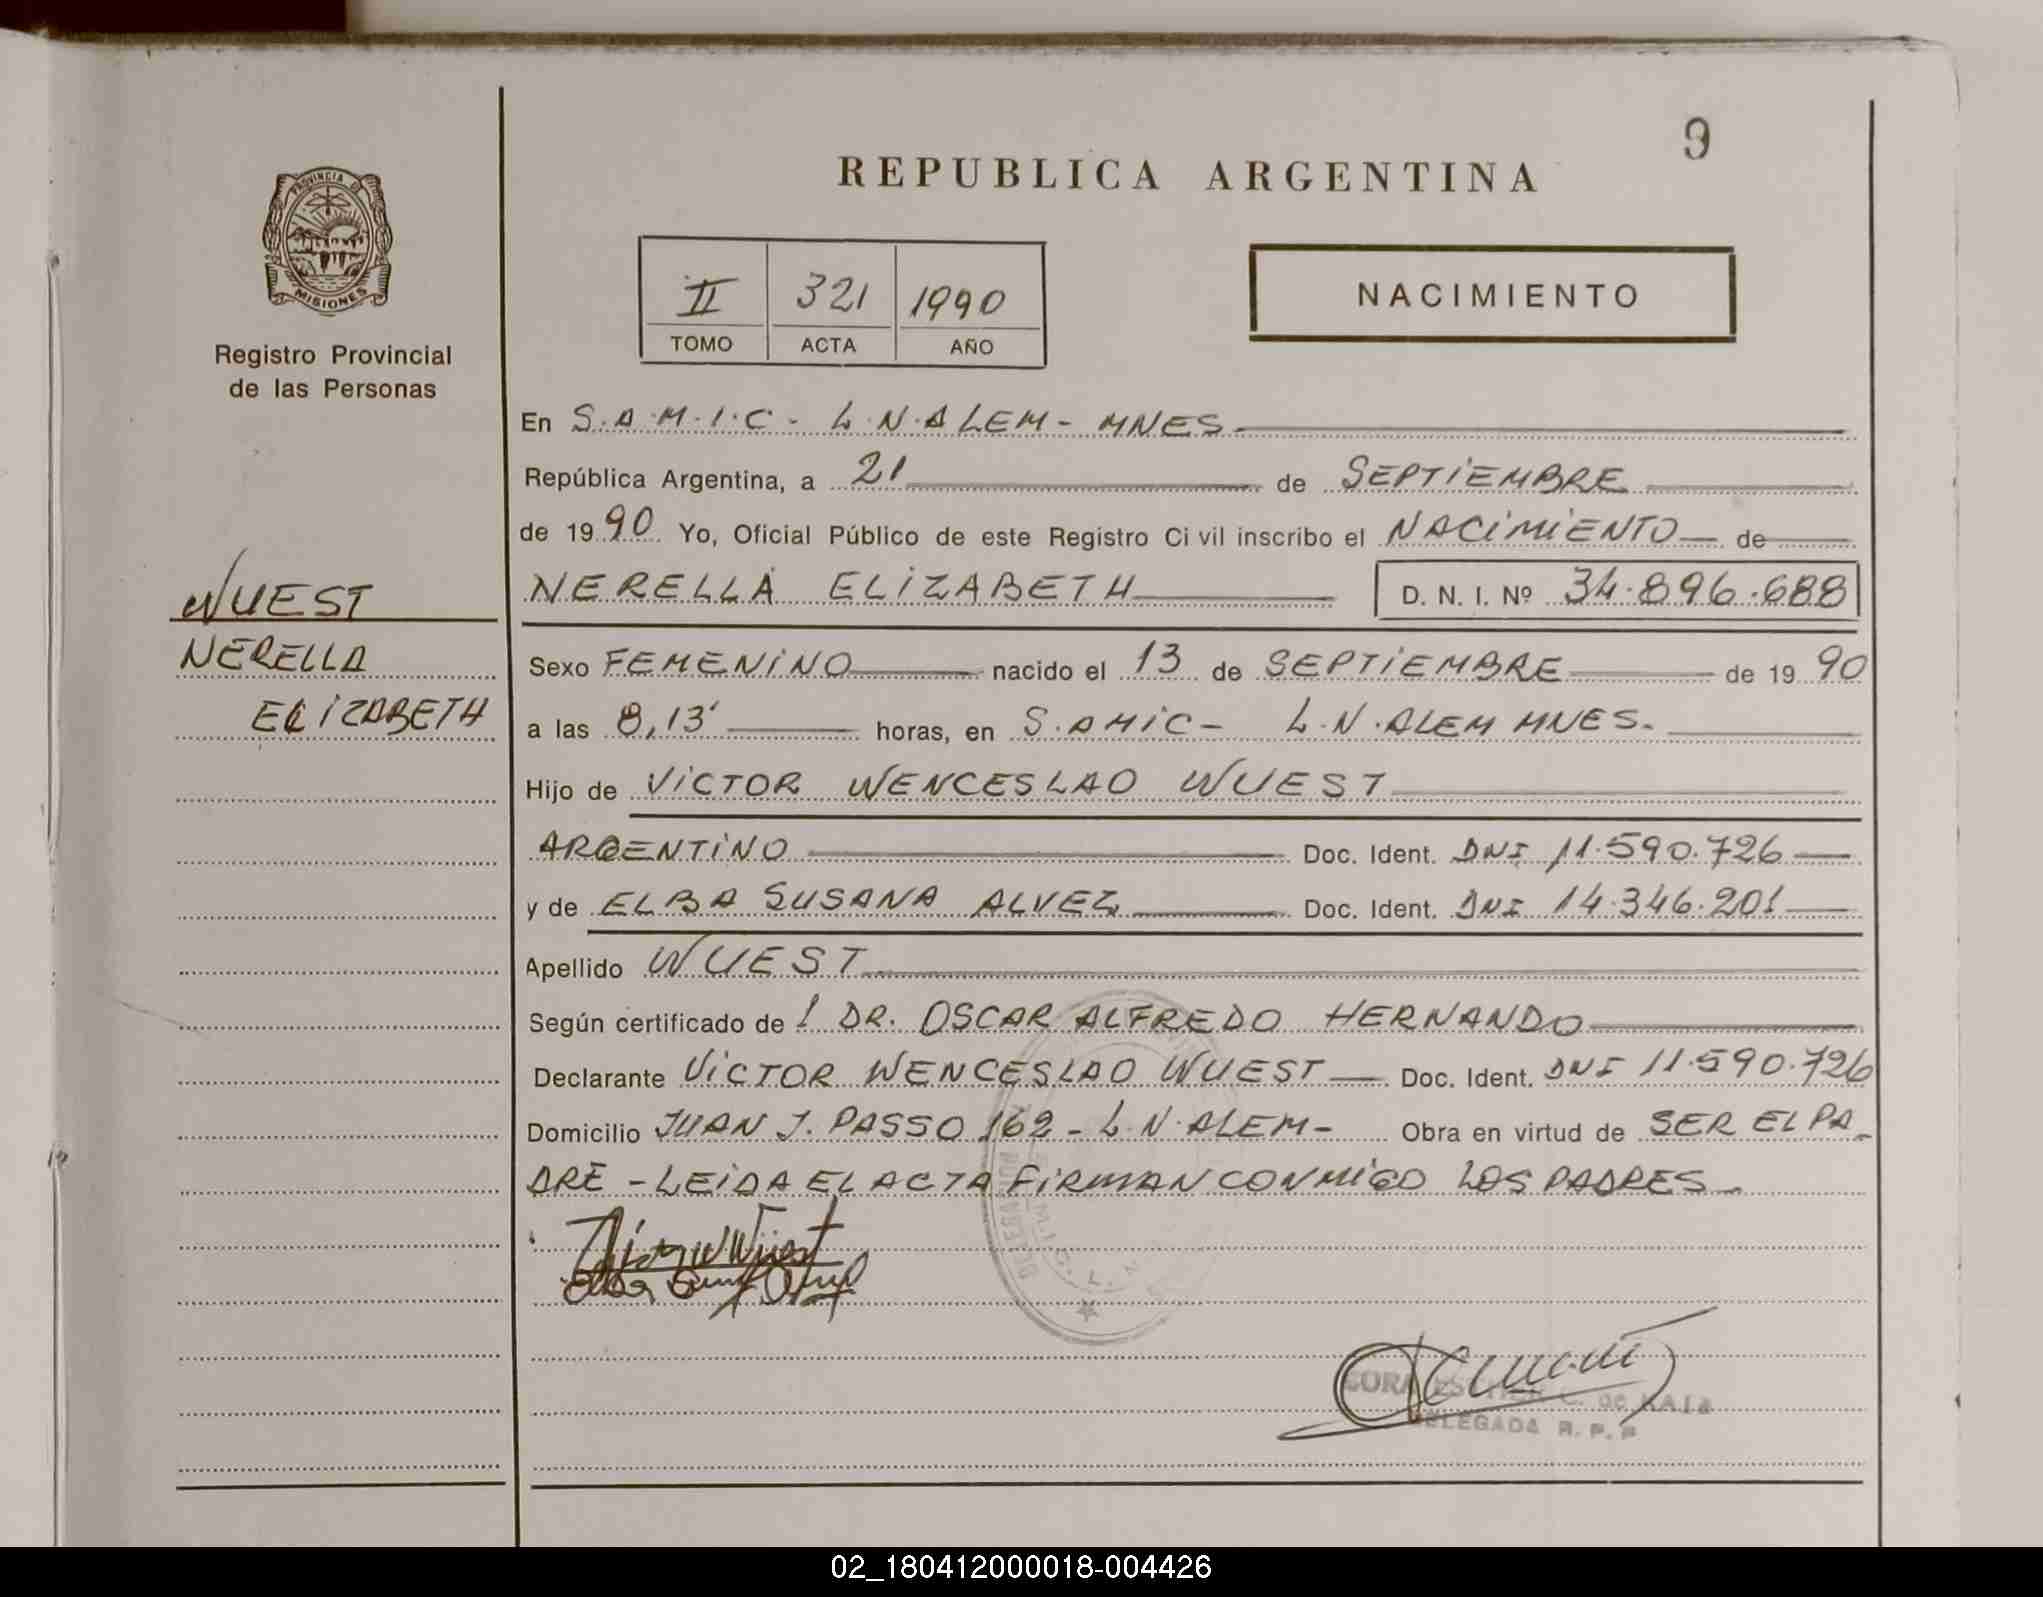 9
REPUBLICA ARGENTINA
PROVINCIA DE
MISIONES
Registro Provincial
de las Personas
II 321 1990
TOMO ACTA AÑO
NACIMIENTO
En S.A.M.I.C - L.N.ALEM - MNES.
República Argentina, a 21 de SEPTIEMBRE
de 1990 Yo, Oficial Público de este Registro Civil inscribo el NACIMIENTO de
NERELLA ELIZABETH D. N. I. Nº 34.896.688
WUEST
NERELLA
ELIZABETH
Sexo FEMENINO nacido el 13 de SEPTIEMBRE de 1990
a las 8,13' horas, en S.AMIC - L.N.ALEM MNES.
Hijo de VICTOR WENCESLAO WUEST
ARGENTINO Doc. Ident. DNI 11.590.726
y de ELBA SUSANA ALVEZ Doc. Ident. DNI 14.346.201
Apellido WUEST
Según certificado de l DR. OSCAR ALFREDO HERNANDO
Declarante VICTOR WENCESLAO WUEST Doc. Ident. DNI 11.590.726
Domicilio JUAN J. PASSO 162 - L.N.ALEM - Obra en virtud de SER EL PA-
DRE - LEIDA EL ACTA FIRMAN CONMIGO LOS PADRES
DELEGADA R. P. P
02_180412000018-004426